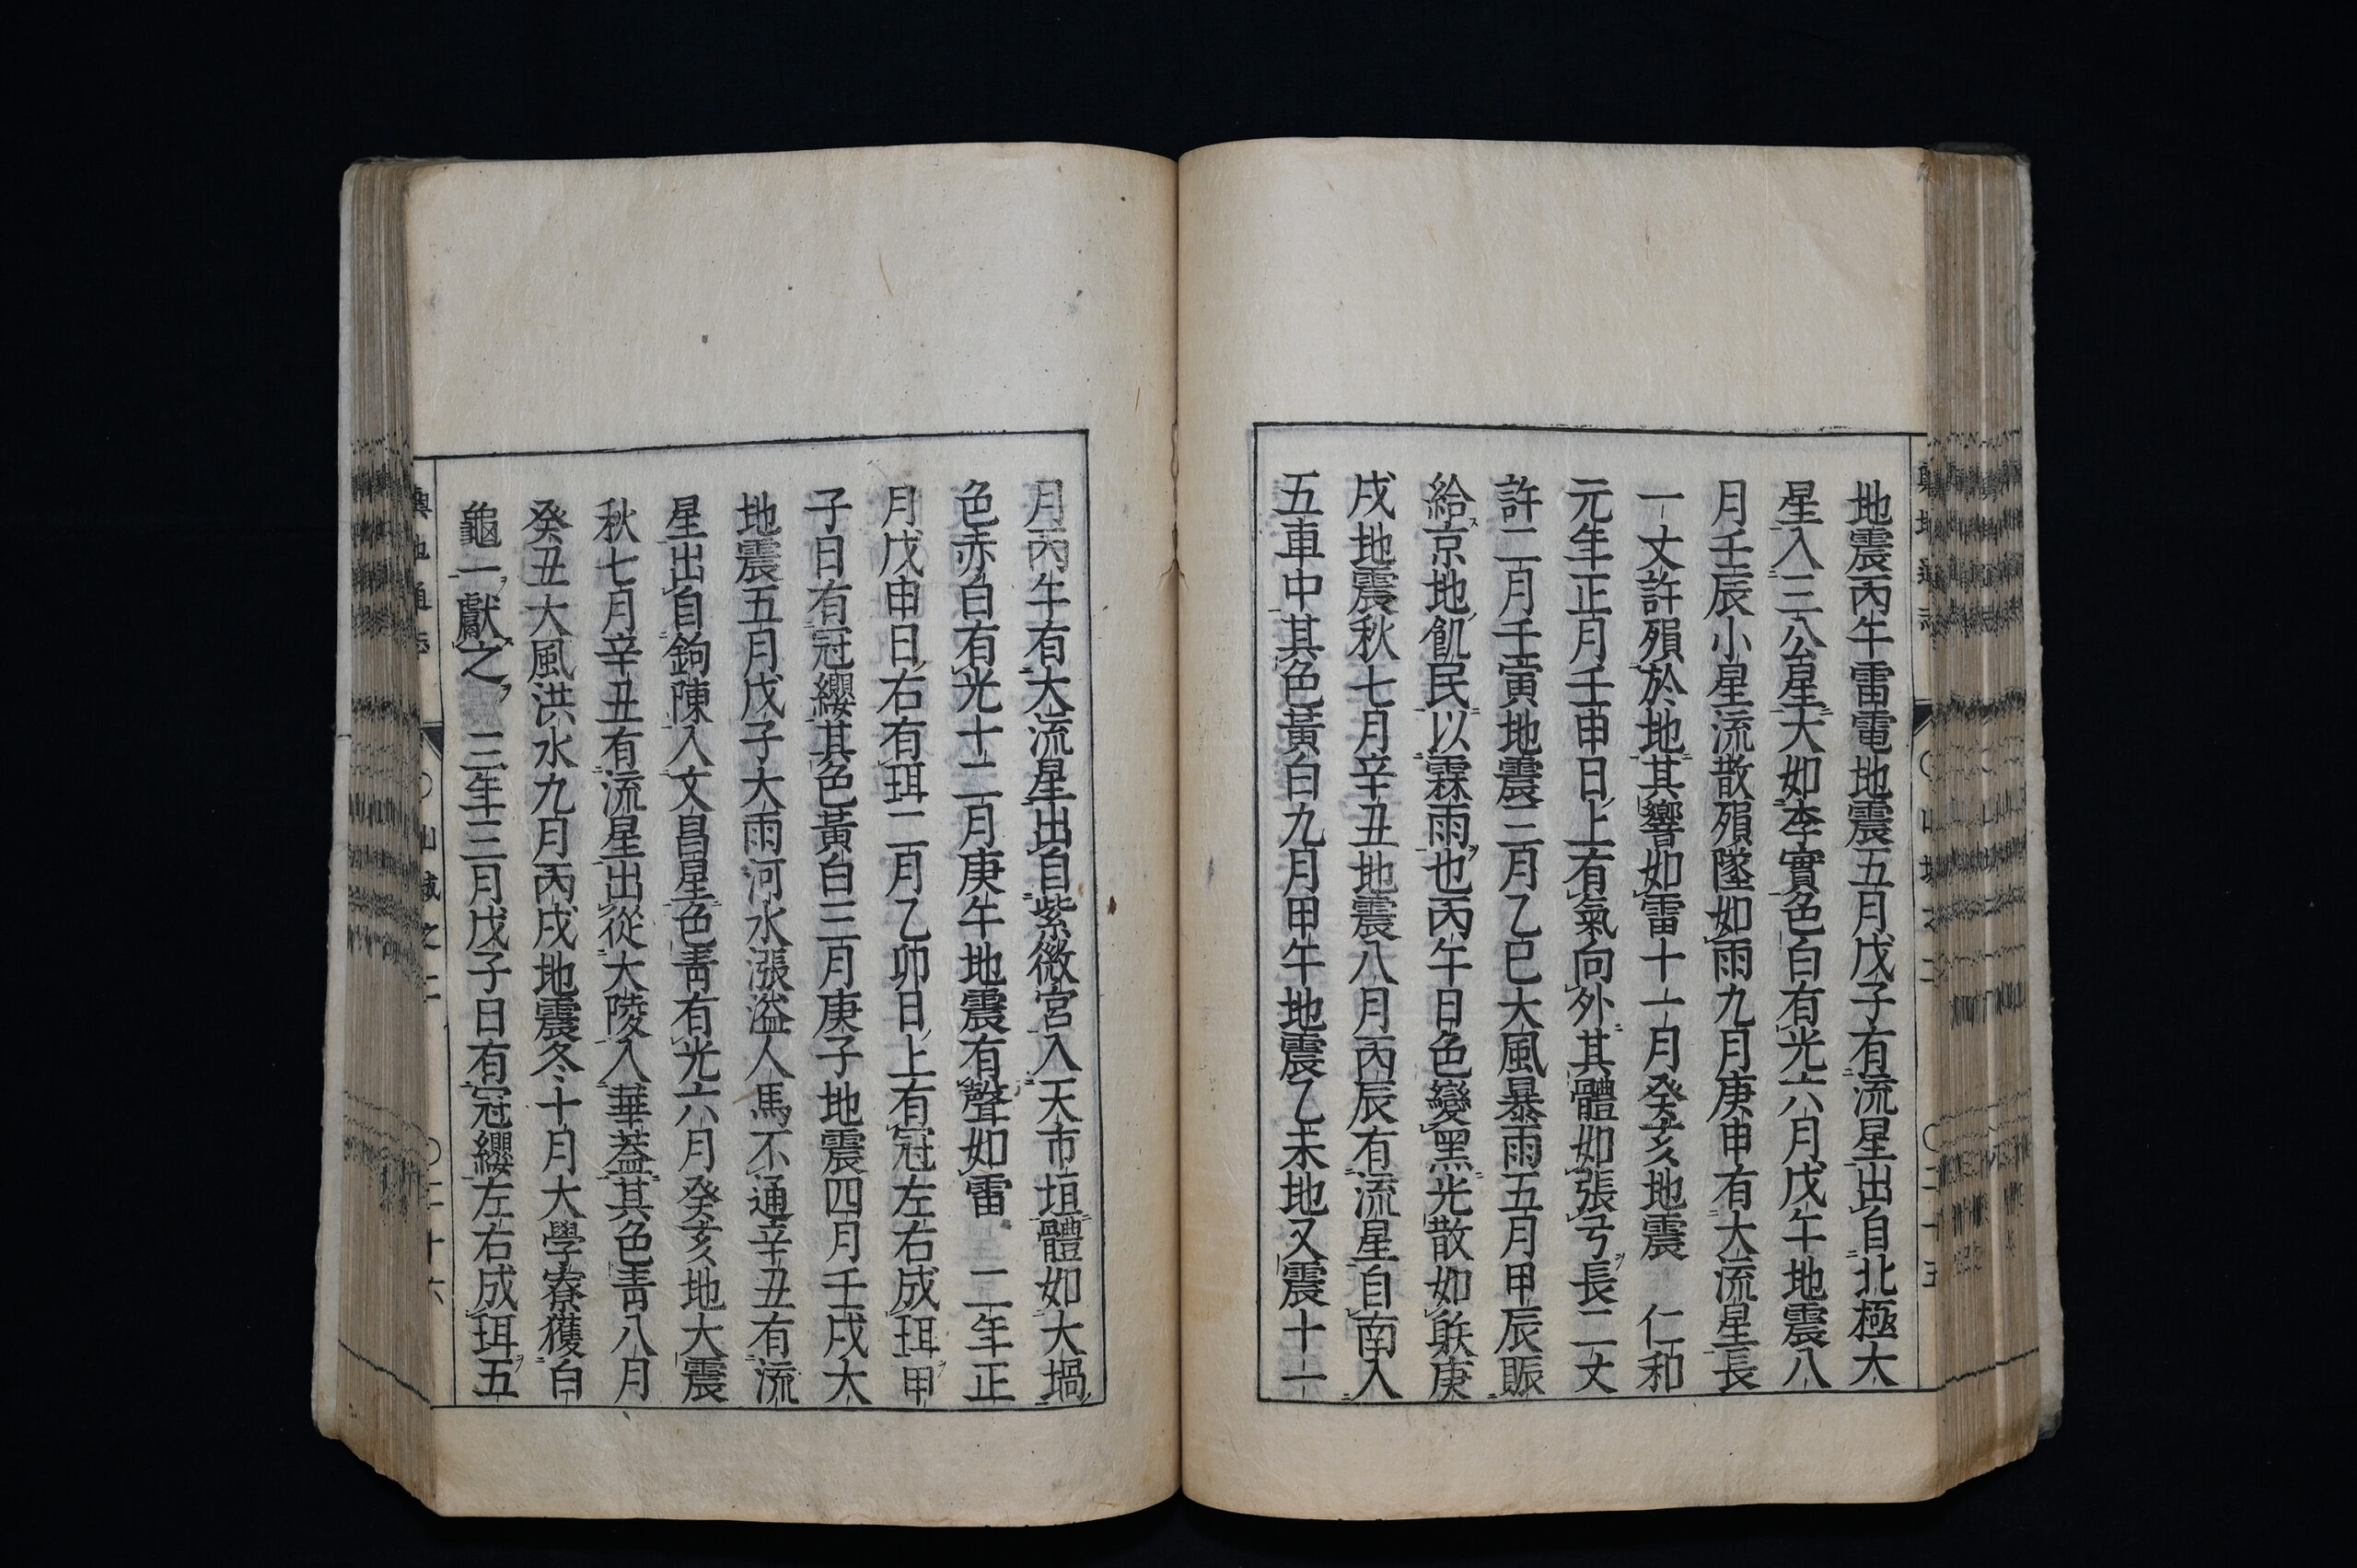 地震丙午雷電地震五月戊子有流星出自北極大
星入三公星大如李實色白有光六月戊午地震八
月壬辰小星流散殞墜如雨九月庚申有大流星長
一丈許殞於地其響如雷十一月癸亥地震　仁和
元年正月壬申日上有氣向外其體如張弓長二丈
許二月壬寅地震三月乙巳大風暴雨五月甲辰賑
給京地飢民以霖雨也丙午日色變黑光散如眹庚
戌地震秋七月辛丑地震八月丙辰有流星自南入
五車中其色黃白九月甲午地震乙未地又震十一
月丙午有大流星出自紫微宮入天市垣體如大堝
色赤白有光十二月庚午地震有聲如雷　二年正
月戊申日右有珥二月乙卯日上有冠左右成珥甲
子日有冠纓其色黃白三月庚子地震四月壬戌大
地震五月戊子大雨河水漲溢人馬不通辛丑有流
星出自鉤陳入文昌星色靑有光六月癸亥地大震
秋七月辛丑有流星出從大陵入華蓋其色靑八月
癸丑大風洪水九月丙戌地震冬十月大學寮獲白
龜一獻之　三年三月戊子日有冠纓左右成珥五